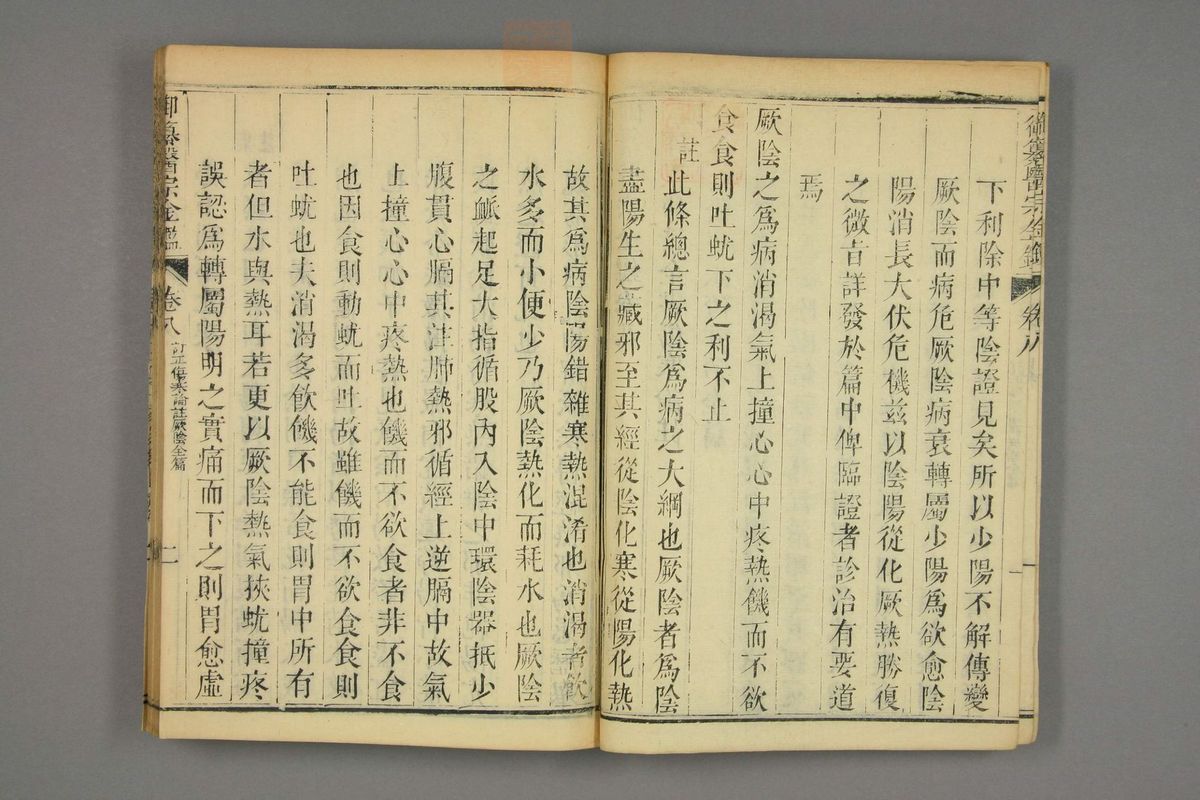 御纂醫宗金鑑
卷八
下利除中等陰證見矣所以少陽不解傳變
厥陰而病危厥陰病衰轉屬少陽為欲愈陰
陽消長大伏危機茲以陰陽從化厥熱勝復
之微旨詳發於篇中俾臨證者診治有要道
焉
厥陰之為病消渴氣上撞心心中疼熱饑而不欲
食食則吐蚘下之利不止
註此條總言厥陰為病之大綱也厥陰者為陰
盡陽生之藏邪至其經從陰化寒從陽化熱
故其為病陰陽錯雜寒熱混淆也消渴者飲
水多而小便少乃厥陰熱化而耗水也厥陰
之脈起足大指循股內入陰中環陰器抵少
腹貫心膈其注肺熱邪循經上逆膈中故氣
上撞心心中疼熱也饑而不欲食者非不食
也因食則動蚘而吐故雖饑而不欲食食則
吐蚘也夫消渴多飲饑不能食則胃中所有
者但水與熱耳若更以厥陰熱氣挾蚘撞疼
誤認為轉屬陽明之實痛而下之則胃愈虛
御纂醫宗金鑑
卷八
訂正傷寒論註厥陰全篇
二